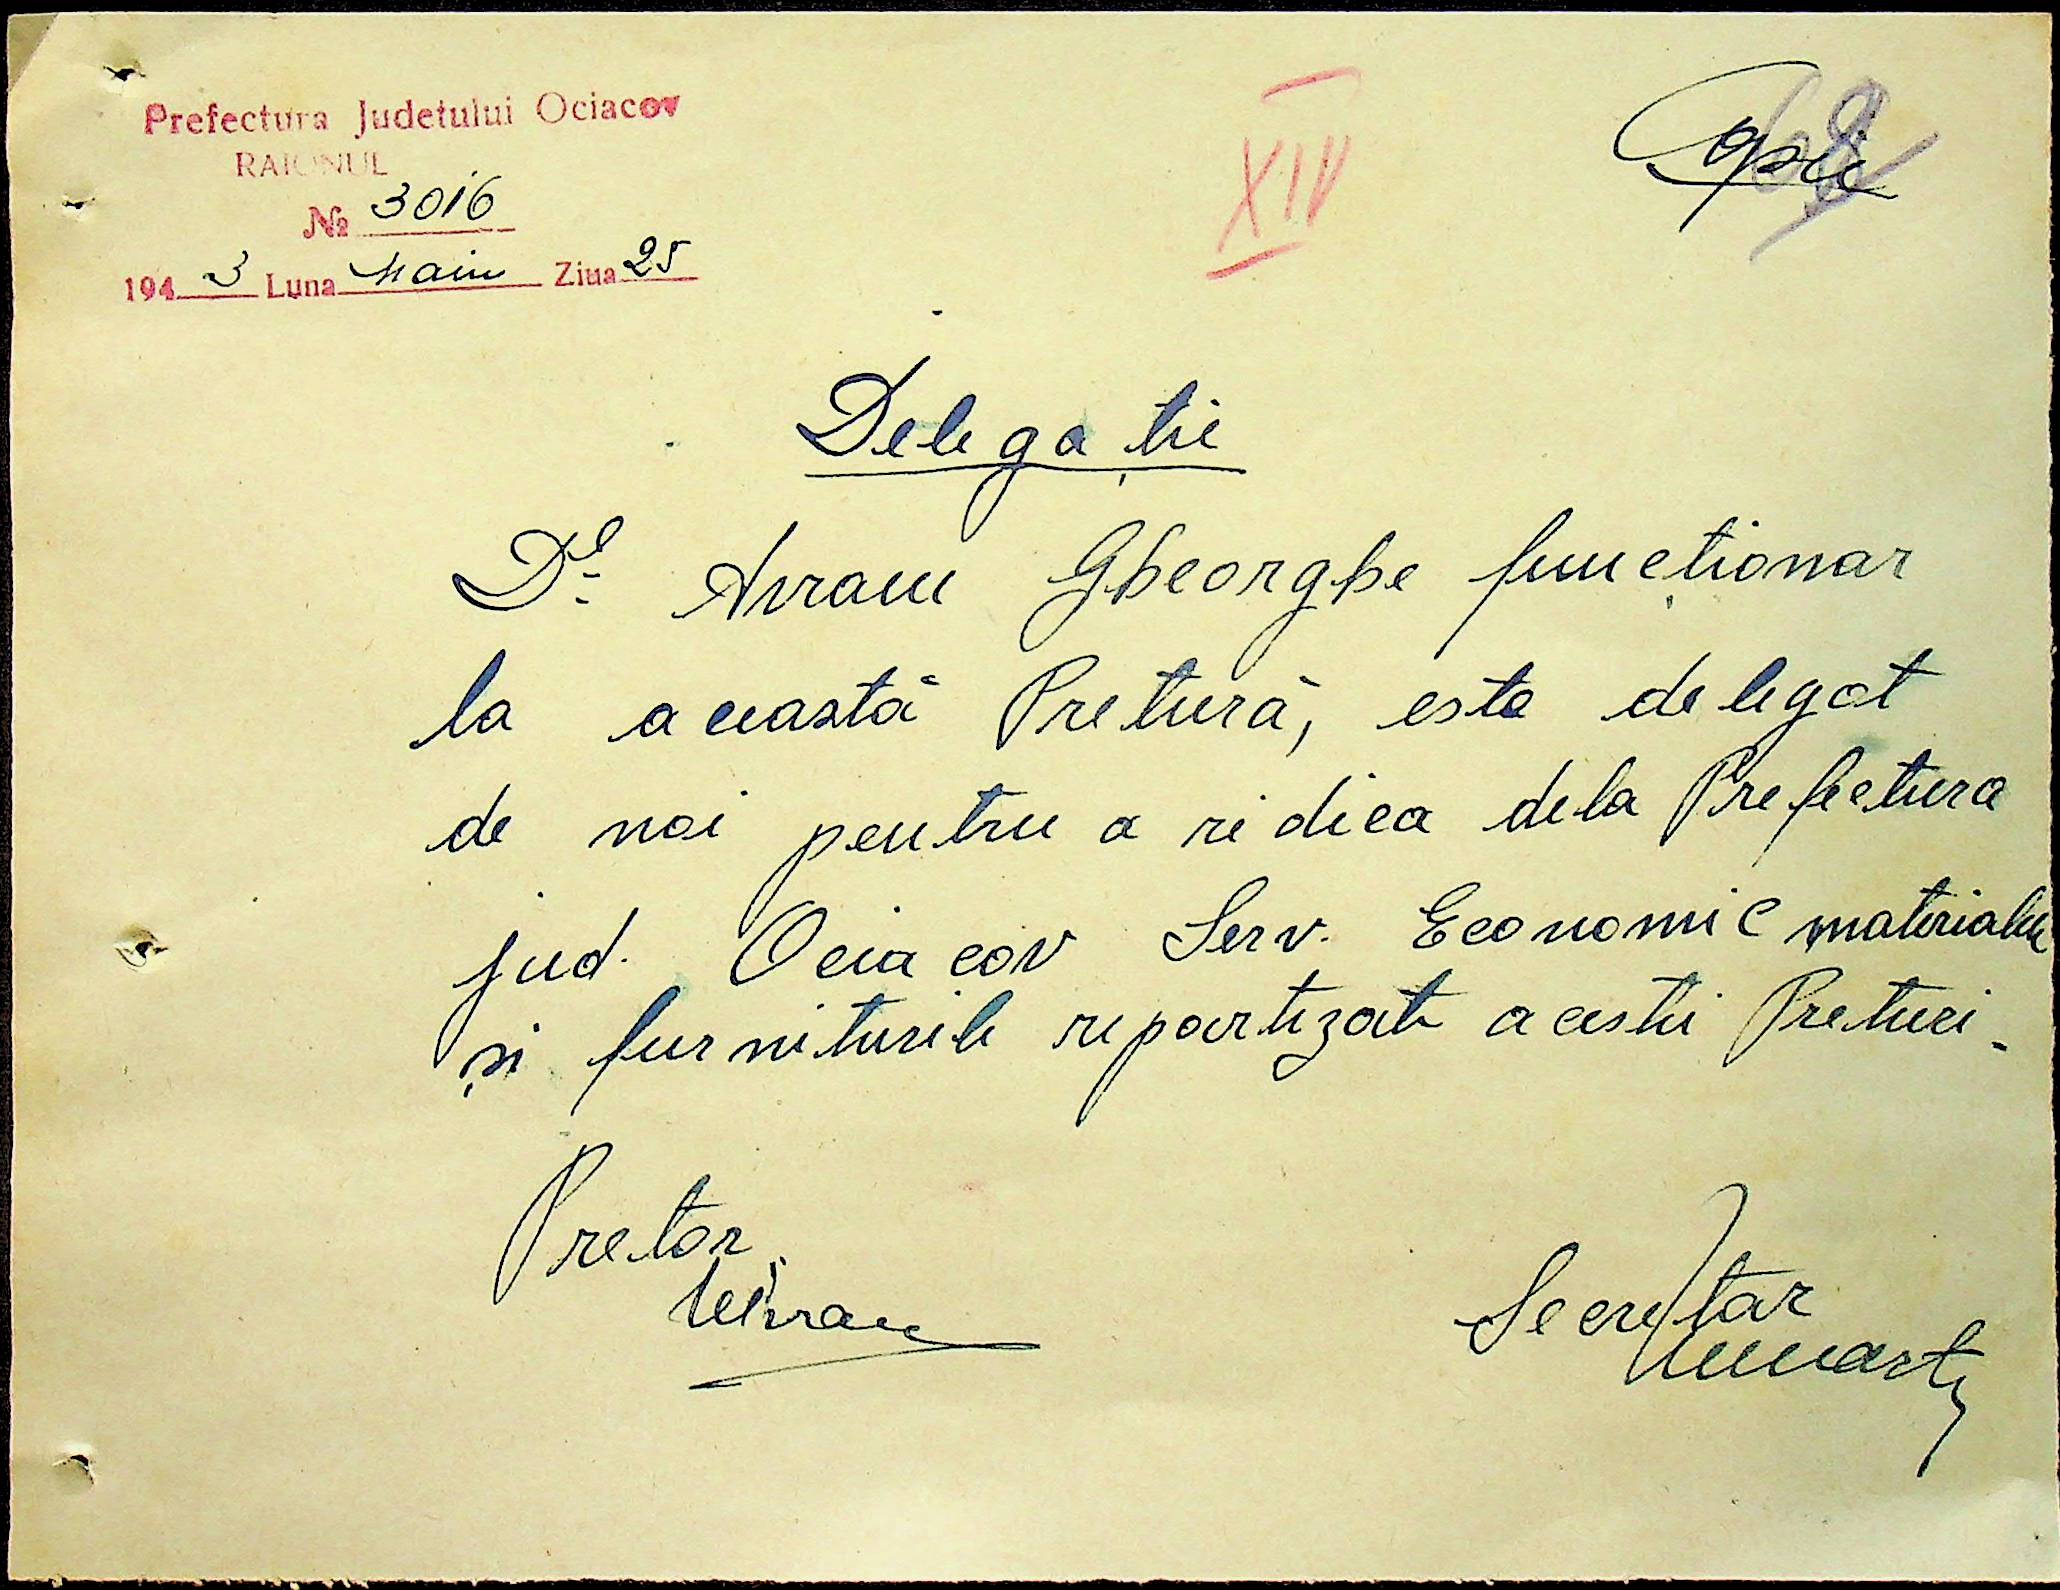 Prefectura Judetului Ociacov
RAIONUL
№ 3016
1943 Luna Maiu Ziua 25
XIV
Copie
Delegație
Dl. Avram Gheorghe funcționar
la această Pretură, este delegat
de noi pentru a ridica dela Prefectura
jud. Ociacov Serv. Economic materialele
și furniturile repartizate acestei Preturi.
Pretor,
Secretar